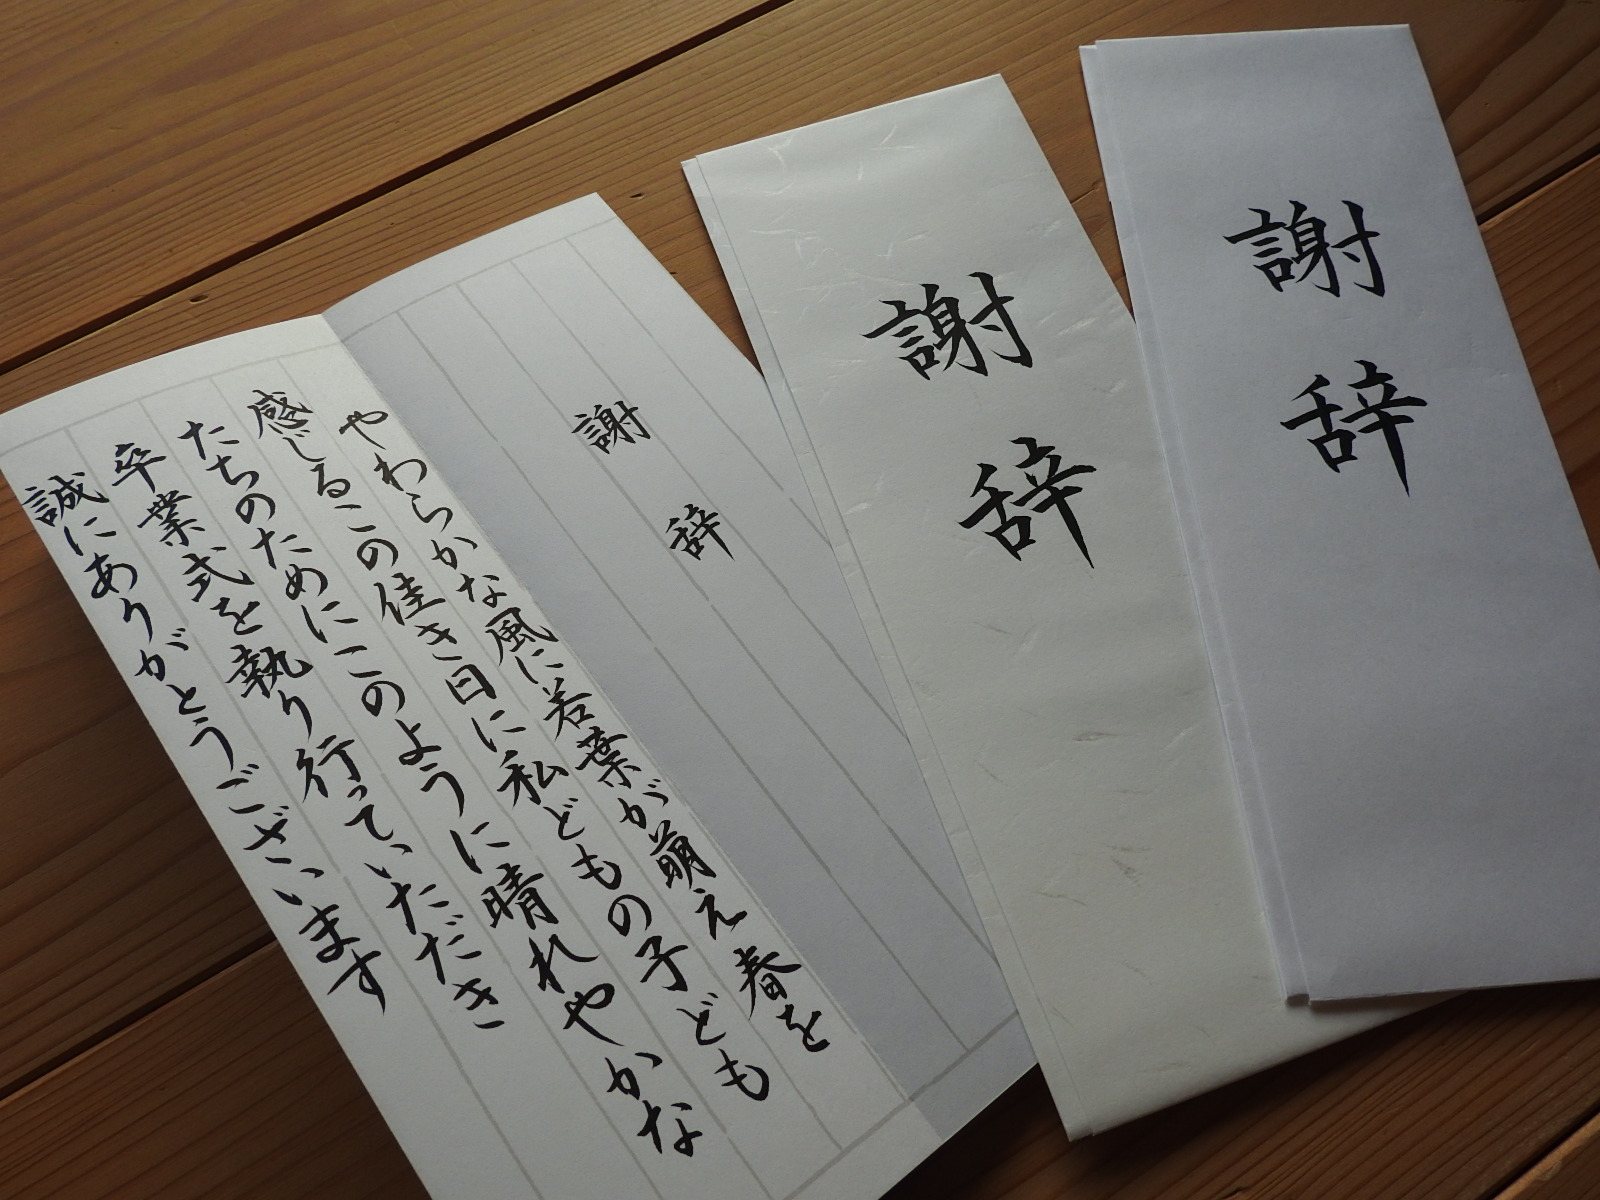 謝辞
やわらかな風に若葉が萌え春を
感じるこの佳き日に私どもの子ども
たちのためにこのように晴れやかな
卒業式を執り行っていただき
誠にありがとうございます
謝辞
謝辞